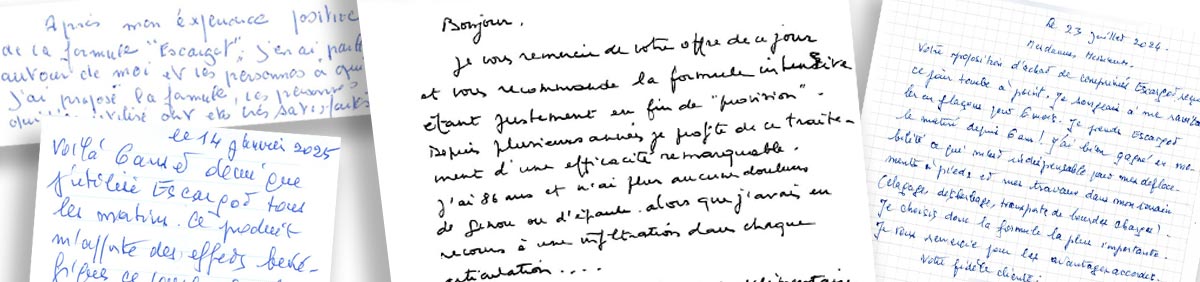 Après mon expérience positive
de la formule "Escargot", j'en ai parlé
autour de moi et les personnes à qui
j'ai proposé la formule, les personnes
ont été très satisfaites
le 14 Janvier 2025
Voilà 6 ans et demi que
j'utilise Escargot tous
les matins. Ce produit
m'apporte des effets béné-
fiques
Bonjour,
Je vous remercie de votre offre de ce jour
et vous recommande la formule intensive
étant justement en fin de "provision".
Depuis plusieurs années je profite de ce traite-
ment d'une efficacité remarquable.
J'ai 86 ans et n'ai plus aucune douleurs
de genou ou d'épaule. alors que j'avais eu
recours à une infiltration dans chaque
articulation....
Le 23 juillet 2024.
Mesdames Messieurs.
Votre proposition d'achat de comprimés Escargot reçue
ce jour tombe à point. Je songeais à me ravitail
ler en flacons pour 6 mois. Je prends Escargot
le matin depuis 6 ans ! J'ai bien gagné en mo-
bilité ce qui m'est indispensable pour mes déplace-
ments à pieds et mes travaux dans mon terrain
(élagage, désherbage, transports de lourdes charges).
Je choisis donc la formule la plus importante.
Je vous remercie pour les avantages accordés.
Votre fidèle cliente.